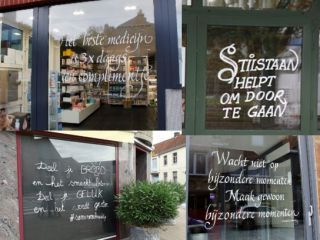 Het beste medicijn
is 3x daags
een complimentje
STILSTAAN
HELPT
OM DOOR
TE GAAN
Deel je BROOD
en het smaakt beter
Deel je GELUK
en het
Wacht niet op
bijzondere momenten
Maak gewoon
bijzondere momenten